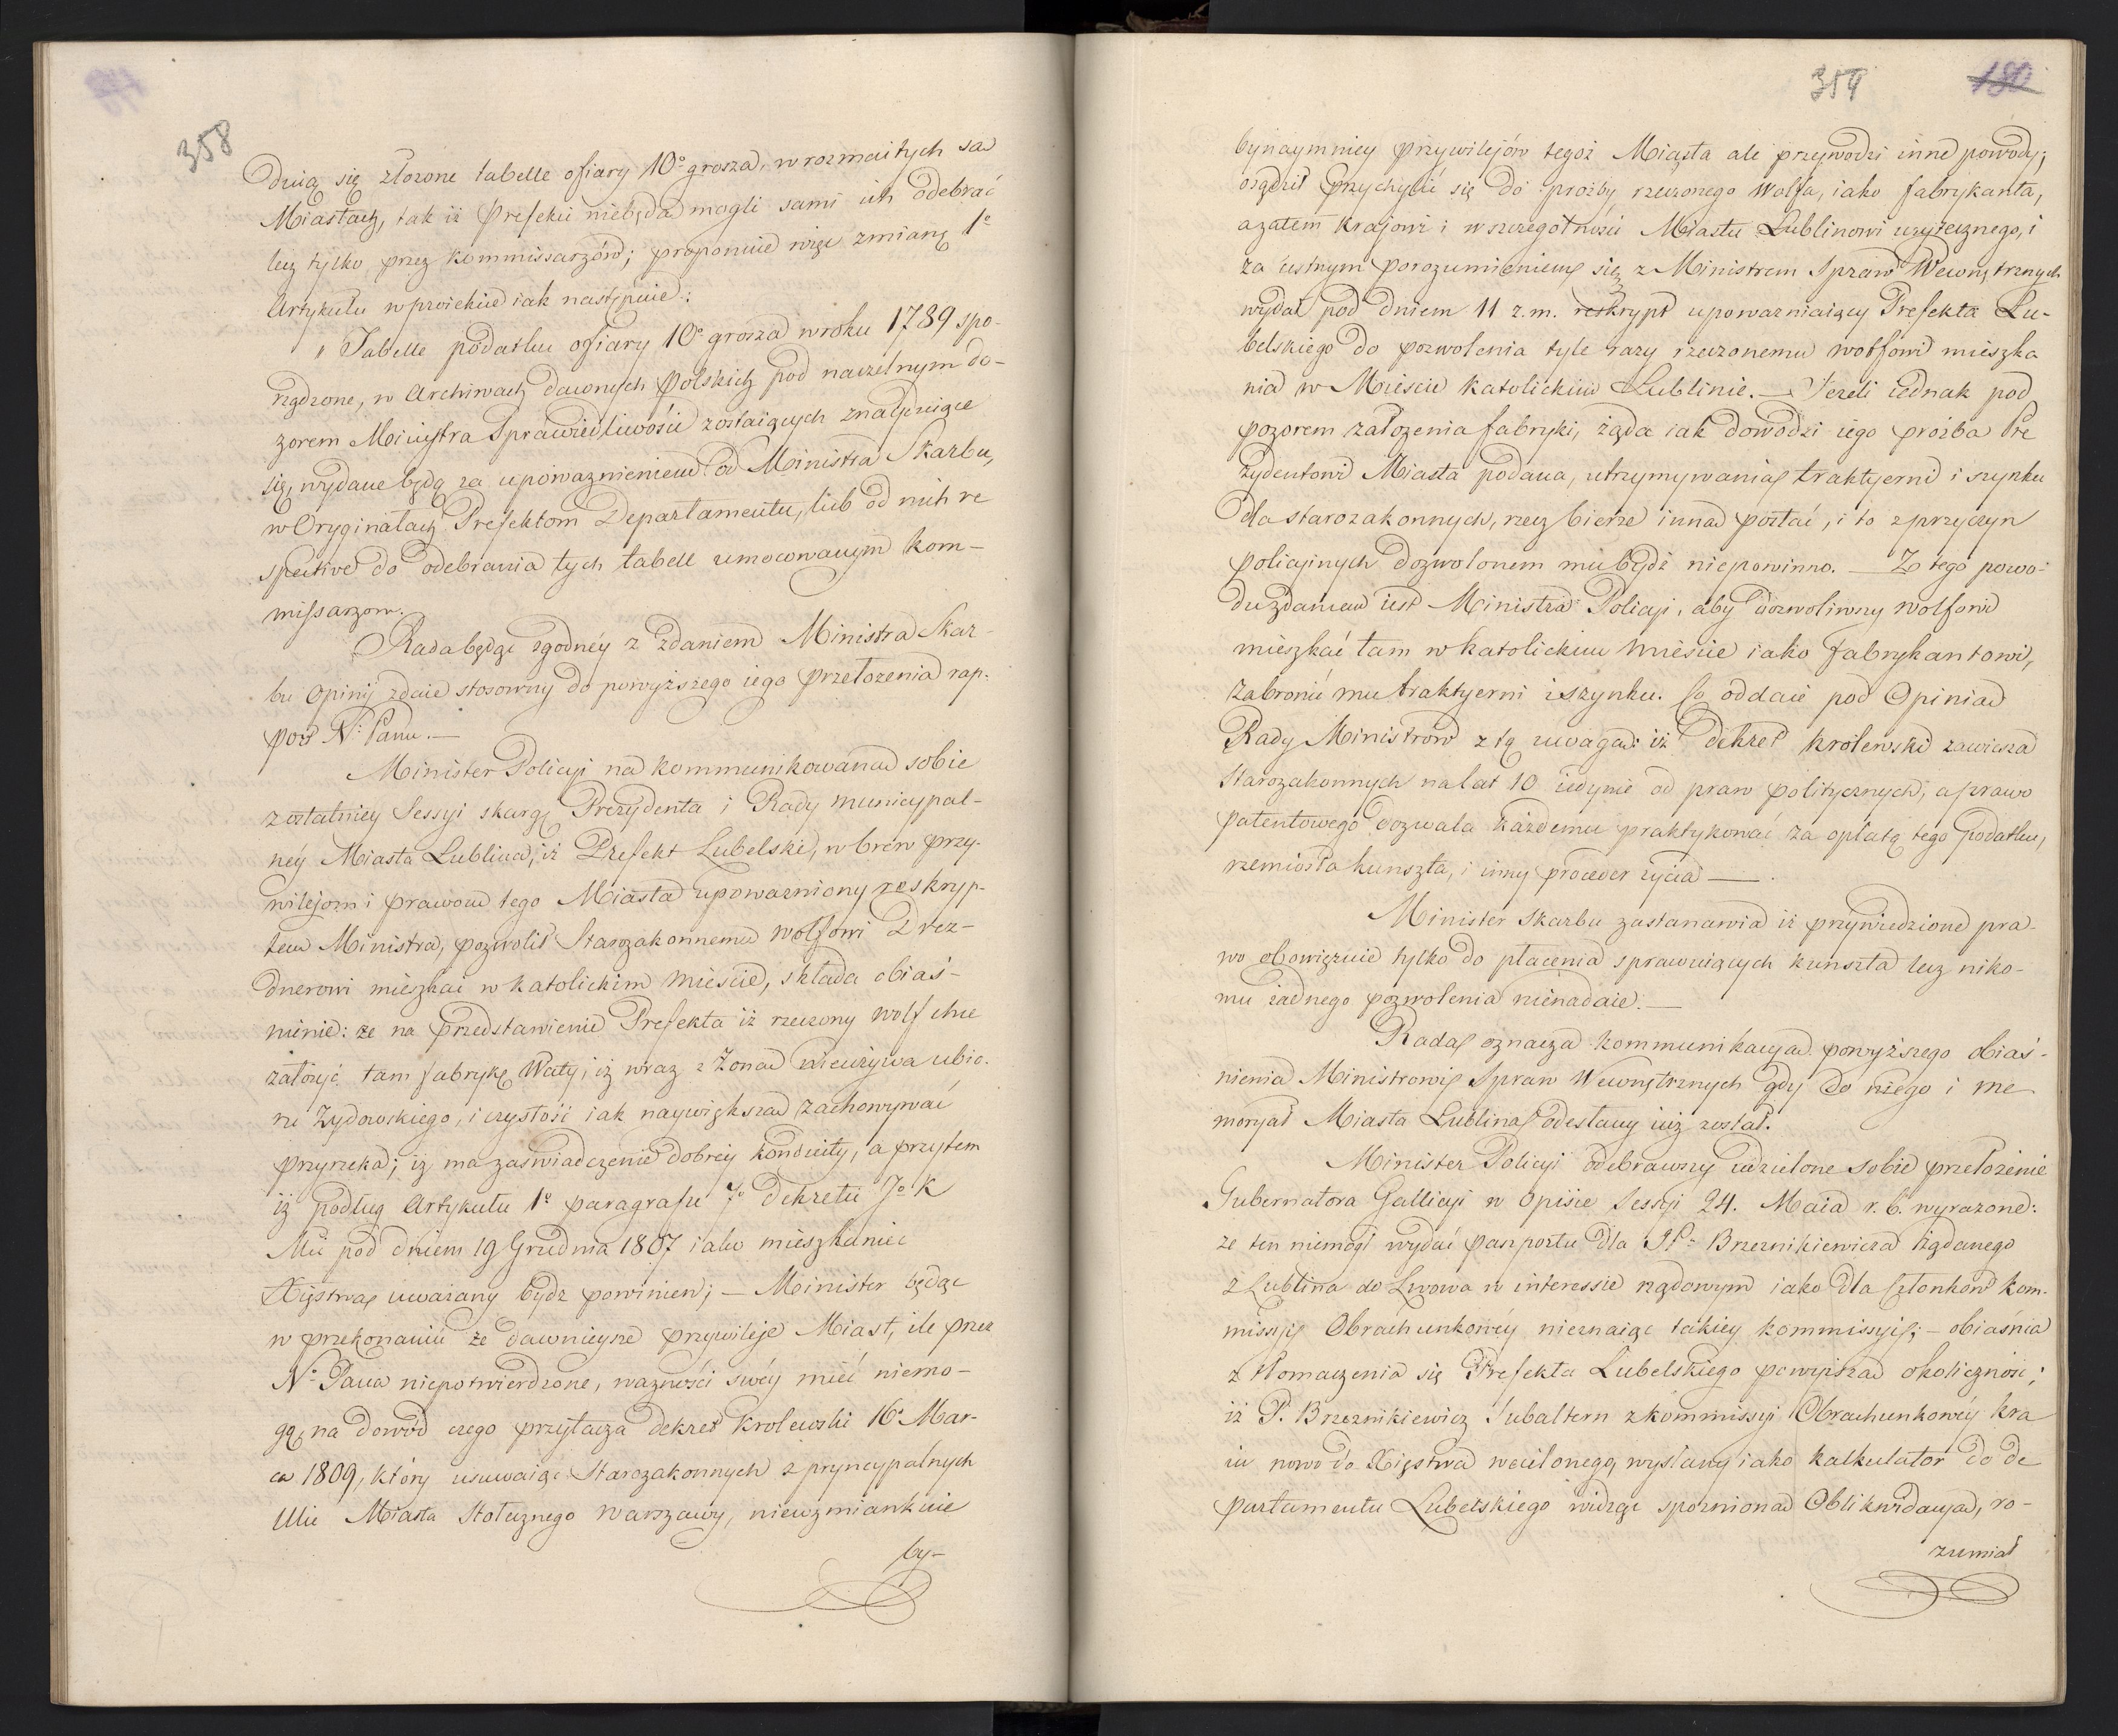 358
dnią się złożone tabelle ofiary 10º grosza, w rozmaitych są
Miastach, tak iż Prefekci niebędą mogli sami ich odebrać
lecz tylko przez Kommissarzów; proponuie więc zmianę 1º
Artykułu w proiekcie iak następuie:
" Tabelle podatku ofiary 10º grosza w roku 1789 spo-
rządzone, w Archiwach dawnych Polskich pod naczelnym do-
zorem Ministra Sprawiedliwości zostaiących znayduiące
się, wydane będą za upoważnieniem od Ministra Skarbu,
w Oryginałach Prefektom Departamentu, lub od nich re
spective do odebrania tych tabell umocowanym Kom-
missarzom.
Rada będąc zgodnéy z zdaniem Ministra Skar-
bu Opinij zdaie stosowny do powyższego iego przełożenia rap-
port N: Panu.—
Minister Policyi na kommunikowaną sobie
z ostatniey Sessyi skargę Prezydenta i Rady municypal-
néy Miasta Lublina, iż Prefekt Lubelski, w brew przy-
wilejom i prawom tego Miasta upoważniony reskryp-
tem Ministra, pozwolił Starozakonnemu Wolfowi Drez-
dnerowi mieszkać w katolickim Mieście, składa obiaś-
nienie: że na przedstawienie Prefekta iż rzeczony Wolf chce
założyć tam fabrykę Waty, iż wraz z Żoną nieużywa ubio-
ru Żydowskiego, i czystość iak naywiększą zachowywać
przyrzeka; iż ma zaświadczenie dobréy konduity, a przytem
iż podług Artykułu 1º paragrafu 7º Dekretu Jº K
Mci pod dniem 19 Grudnia 1807 iako mieszkaniec
Xięstwa uważany bydź powinien; — Minister będąc
w przekonaniu że dawnieysze przywileje Miast, ile przez
N: Pana niepotwierdzone, ważności swéy mieć niemo-
gą, na dowód czego przytacza dekret Krolewski 16º Mar-
ca 1809, który usuwaiąc Starozakonnych z pryncypalnych
Ulic Miasta Stołecznego Warszawy, niewzmiankuie
by-
359 180
bynaymniey przywilejów tegoż Miasta ale przywodzi inne powody;
osądził przychylić się do proźby rzeczonego Wolfa, iako fabrykanta,
a zatem Krajowi i w szczególności Miastu Lublinowi użytecznego, i
za ustnym porozumieniem się z Ministrem Spraw Wewnętrznych
wydał pod dniem 11 z. m. reskrypt upoważniaiący Prefekta Lu-
belskiego do pozwolenia tyle razy rzeczonemu Wolfowi mieszka
nia w Mieście Katolickim Lublinie. — Jeżeli iednak pod
pozorem założenia fabryki, żąda iak dowodzi iego proźba Pre
zydentowi Miasta podana, utrzymywania traktyerni i szynku
dla starozakonnych, rzecz bierze inną postać, i to z przyczyn
policyinych dozwolonem mu bydź niepowinno. — Z tego powo-
du zdaniem iest Ministra Policyi, aby dozwoliwszy Wolfowi
mieszkać tam w Katolickim Mieście iako Fabrykantowi,
zabronić mu traktyerni i szynku. Co oddaie pod Opinią
Rady Ministrow z tą uwagą: iż dekret Krolewski zawiesza
Starozakonnych na lat 10 iedynie od praw politycznych, a prawo
patentowego dozwala każdemu praktykować za opłatą tego podatku,
rzemiosła kunszta, i inny proceder życia — .
Minister Skarbu zastanawia iż przywiedzione pra-
wo obowięzuie tylko do płacenia sprawuiących kunszta lecz niko-
mu żadnego pozwolenia nienadaie. —
Rada oznacza kommunikacyą powyższego obiaś-
nienia Ministrowi Spraw Wewnętrznych gdy do niego i me
moryał Miasta Lublina odesłany iuż został.
Minister Policyi odebrawszy udzielone sobie przełożenie
Gubernatora Gallicyi w Opisie Sessyi 24. Maia r. b. wyrażone:
że ten niemógł wydać paszportu dla JP: Brzeznikiewicza żądanego
z Lublina do Lwowa w interessie rządowym iako dla Członków Kom-
missyi Obrachunkowéy nieznaiąc takiey kommissyi; — obiaśnia
z tłomaczenia się Prefekta Lubelskiego powyższą okoliczność;
iż P. Brzeznikiewicz Subaltern z kommissyi Obrachunkowéy kra
iu nowo do Xięstwa wcielonego, wysłany iako kalkulator do de
partamentu Lubelskiego widząc spoźnioną Oblikwidacyą, ro-
zumiał